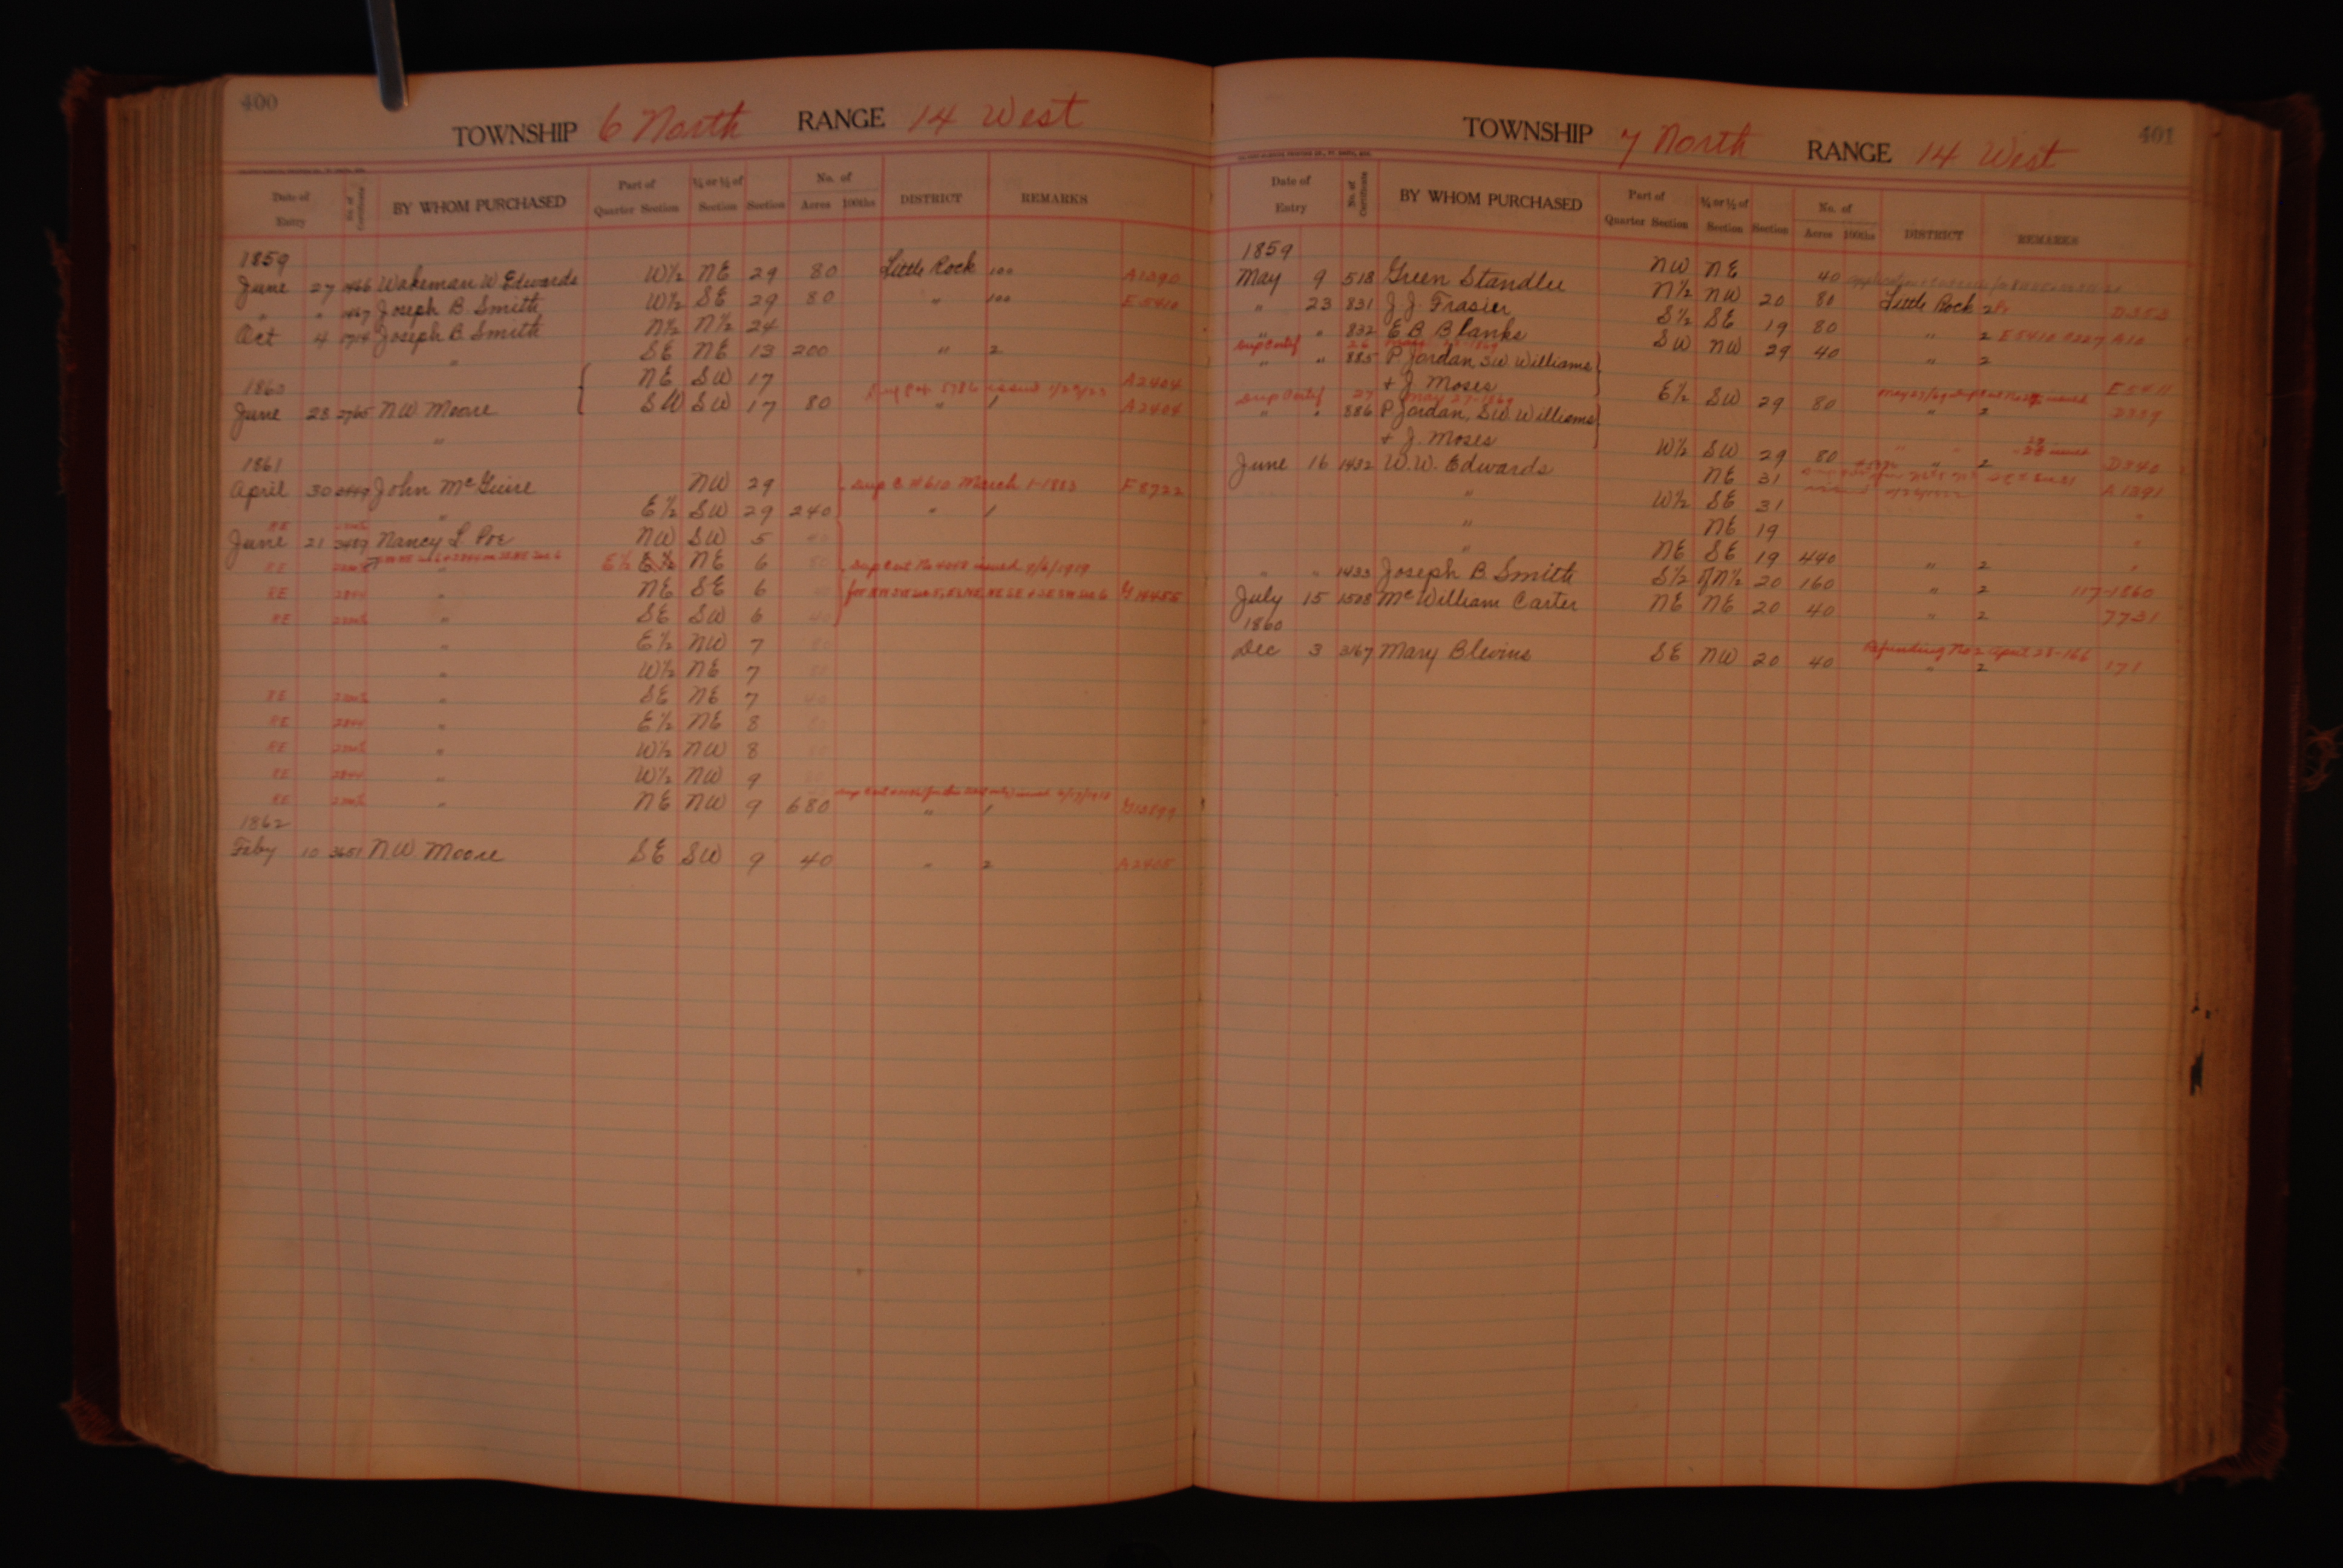 400
TOWNSHIP 6 North RANGE 14 West
Date of Entry No. of Certificate BY WHOM PURCHASED Part of Quarter Section ¼ or ½ of Section Section No. of Acres 100ths DISTRICT REMARKS
1859
June 27 1466 Wakeman W Edwards W½ NE 29 80 Little Rock 100 A1390
" " 1467 Joseph B. Smith W½ SE 29 80 " 100 E5410
Oct 4 1714 Joseph B. Smith N½ N½ 24
" SE NE 13 200 " 2
1860 NE SW 17 A2404
June 23 2765 N W Moore SW SW 17 80 " 1 A2404
"
1861
April 30 John McGuire NW 29 Sup C #610 March 1-1883 F8722
" E½ SW 29 240 " 1
June 21 3487 Nancy L. Poe NW SW 5 40
RE " E½ NE 6 80 Sup Cert No issued
RE 2844 " NE SE 6 G14455
RE " SE SW 6 40
" E½ NW 7 80
" W½ NE 7 80
RE " SE NE 7 40
RE 2844 " E½ NE 8 80
RE " W½ NW 8 80
RE 2844 " W½ NW 9
RE " NE NW 9 680 " 1
1862
Feby 10 3651 N W Moore SE SW 9 40 " 2 A2405
401
TOWNSHIP 7 North RANGE 14 West
Date of Entry No. of Certificate BY WHOM PURCHASED Part of Quarter Section ¼ or ½ of Section Section No. of Acres 100ths DISTRICT REMARKS
1859
May 9 518 Green Standlee NW NE 40
" 23 831 J. J. Frasier N½ NW 20 80 Little Rock D353
" " 832 E B Blanks S½ SE 19 80 " 2 E5410 A10
Sup Certif 26 May
" " 885 P Jordan, SW Williams SW NW 29 40 " 2
+ J. Moses E5411
Sup Certif 27 May 27-1869
" " 886 P Jordan, SW Williams E½ SW 29 80 " 2 D339
+ J. Moses W½ SW 29 80 " 2 D340
June 16 1432 W. W. Edwards NE 31 A1391
" W½ SE 31 "
" NE 19 "
" NE SE 19 440 " 2 "
" " 1433 Joseph B. Smith S½ of N½ 20 160 " 2 117-1860
July 15 1528 McWilliam Carter NE NE 20 40 " 2 7731
1860
Dec 3 3167 Mary Blevins SE NW 20 40 " 2 171
Refunding No 2 April 28-166